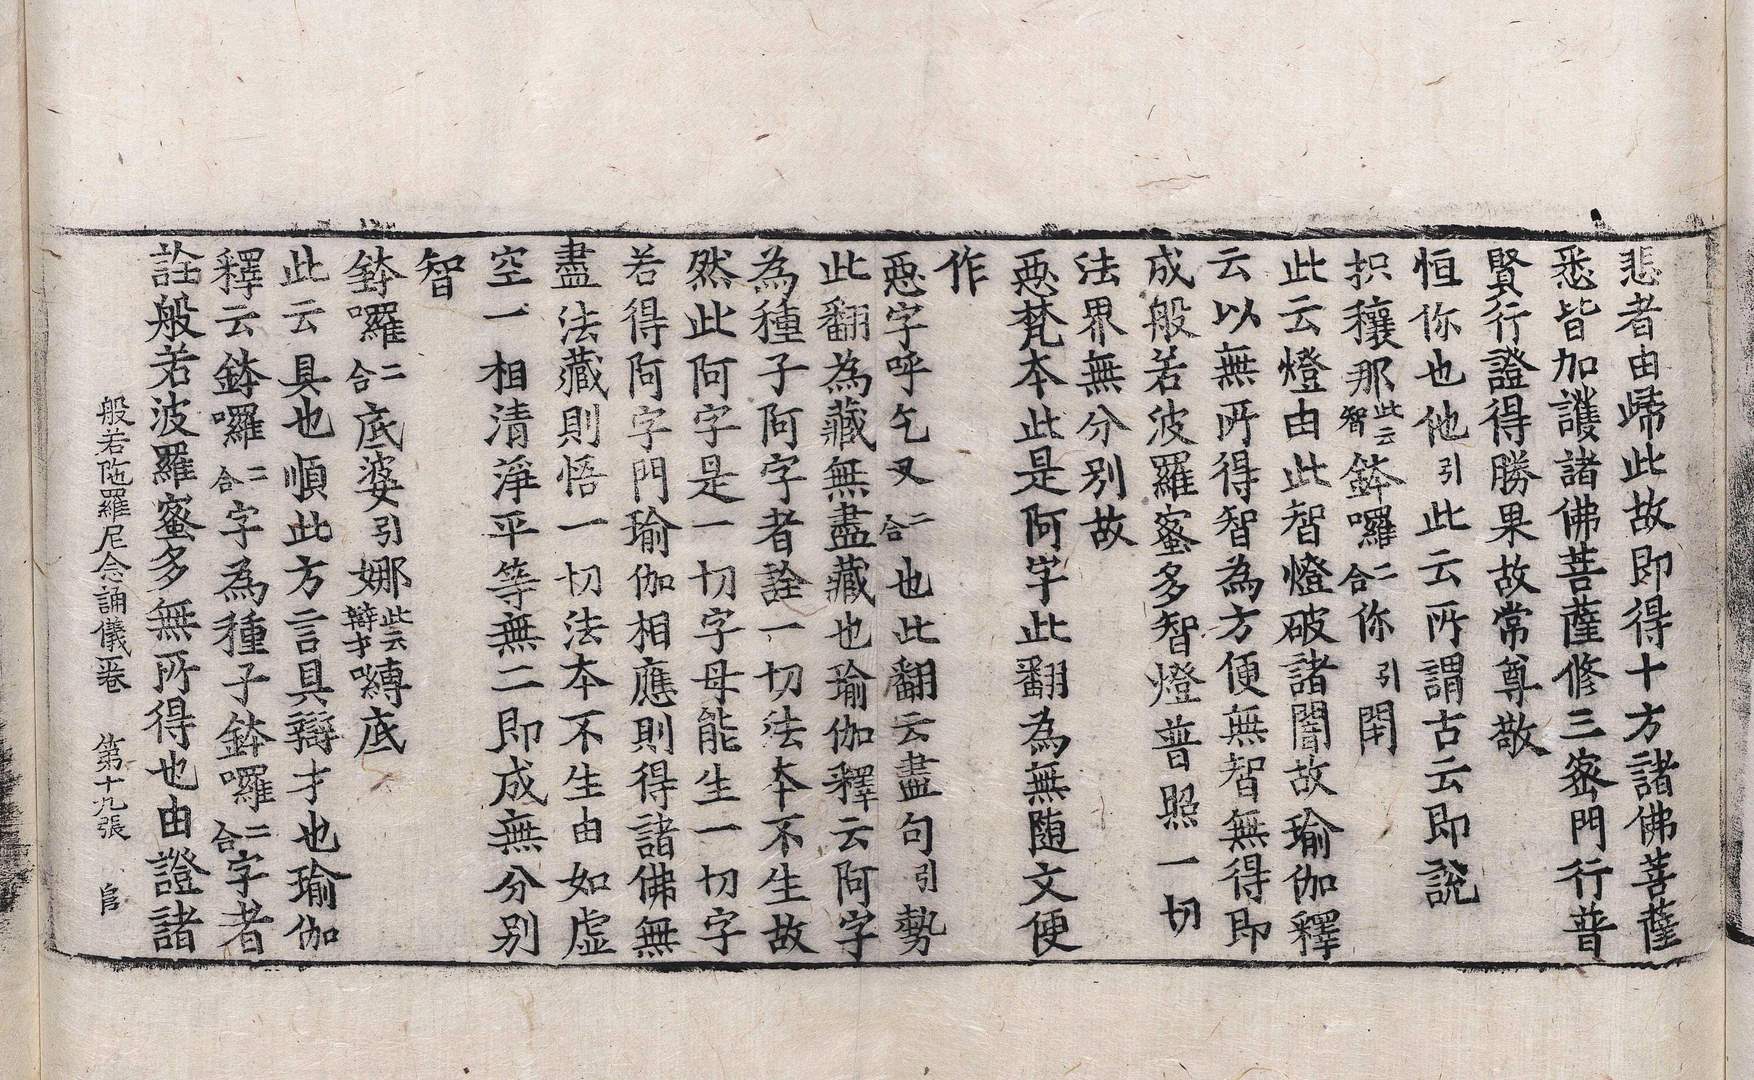 悲者由歸此故即得十方諸佛菩薩
悉皆加護諸佛菩薩修三密門行普
賢行證得勝果故常尊敬
恒你也他引此云所謂古云即說
枳穰那此云智鉢囉二合你引閇
此云燈由此智燈破諸闇故瑜伽釋
云以無所得智為方便無智無得即
成般若波羅蜜多智燈普照一切
法界無分別故
惡梵本此是阿字此翻為無随文便
作
惡字呼乞叉二合也此翻云盡句引勢
此翻為藏無盡藏也瑜伽釋云阿字
為種子阿字者詮一切法本不生故
然此阿字是一切字母能生一切字
若得阿字門瑜伽相應則得諸佛無
盡法藏則悟一切法本不生由如虛
空一相清淨平等無二即成無分別
智
鉢囉二合底婆引娜此云辯才嚩底
此云具也順此方言具辯才也瑜伽
釋云鉢囉二合字為種子鉢囉二合字者
詮般若波羅蜜多無所得也由證諸
般若陁羅尼念誦儀一卷 第十九張 官